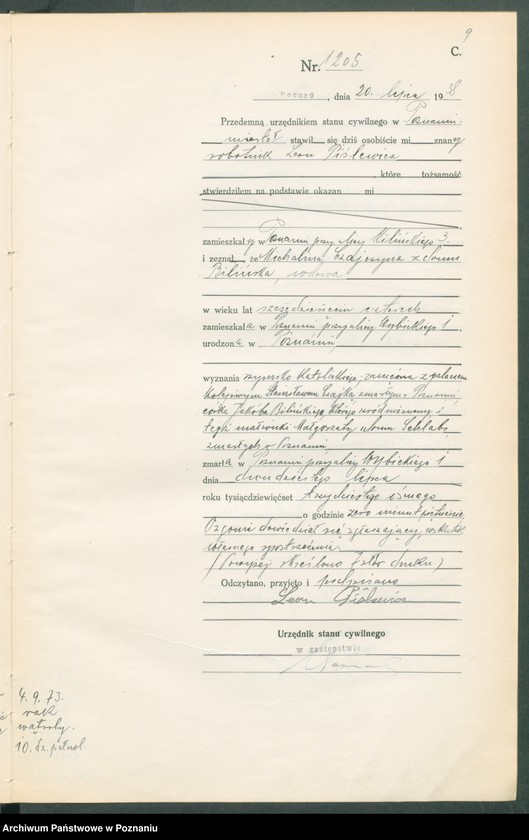 9
C.
Nr. 1205
Poznań, dnia 20. lipca 1938
Przedemną urzędnikiem stanu cywilnego w Poznaniu-
mieście stawił się dziś osobiście mi znany
robotnik Leon
, które tożsamość
stwierdziłem na podstawie okazan mi
zamieszkały w Poznaniu przy ulicy Kilińskiego 3.
i zeznał, że Michalina z domu
Bilińska, wdowa
w wieku lat sześćdziesięciu czterech
zamieszkała w Poznaniu przy ulicy Wybickiego 1,
urodzona w Poznaniu,
wyznania rzymsko katolickiego, zamężna z palaczem
kolejowym Stanisławem zmarłym w Poznaniu
córka Jakóba Bilińskiego, i
tegoż małżonki Małgorzaty z domu
zmarłych w Poznaniu
zmarła w Poznaniu przy ulicy Wybickiego 1
dnia dwudziestego lipca
roku tysiącdziewięćset trzydziestego ósmego
o godzinie zero minut piętnaście
O zgonie dowiedział się zgłaszający wskutek
własnego spostrzeżenia.
(Powyżej skreślono słów druku)
Odczytano, przyjęto i podpisano
Leon
Urzędnik stanu cywilnego
w zastępstwie
4.9.73.
rak
wątroby.
10.
Archiwum Państwowe w Poznaniu